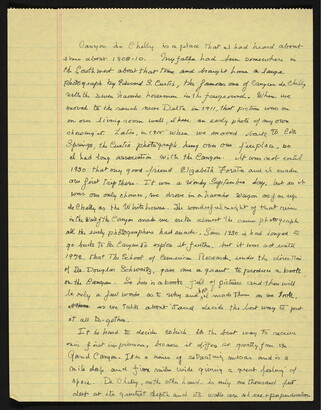 Canyon de Chelly is a place that I had heard about
since about 1908-10. My father had been somewhere in
the Southwest about that time and brought home a large
photograph by Edward S. Curtis, the famous one of Canyon de Chelly
with the seven Navaho horsemen in the foreground. When we
moved to the ranch near Delta in 1911, that picture was on
our living room wall, I have an early photo of my own
showing it. Later, in 1915 when we moved back to Colo
Springs, the Curtis photograph hung over our fireplace, so
I had long association with the Canyon. It was not until
1930 that my good friend Elizabeth Forster and I made
our first trip there. It was a windy September day, but as it
was our only chance, we drove in a Spring Wagon as far up
de Chelly as the Whitehouse. The wonderful sight of that ruin
in the Wall of the Canyon made me make almost the same photograph
all the early photographers had made. Since 1930 I had longed to
go back to the Canyon to explore it further, but it was not until
1972, that The School of American Research, under the direction
of Dr. Douglas Schwartz, gave me a grant to produce a book
on the Canyon. So this is a book full of pictures and there will
be only a few words as to why and how I made them on our book,
as we talk about it and decide the best way to put
it all together.
It is hard to decide which is the best way to receive
our first impressions, because it differs so greatly from the
Grand Canyon. It is a mile deep and miles wide giving a great feeling of
space. De Chelly, on the other hand, is only one thousand feet
deep at its greatest depth and its walls are at once perpendicular